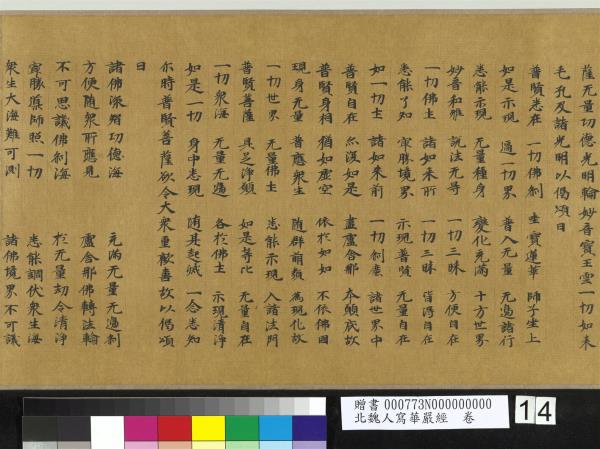 薩无量功德光明輪妙音寶王雲一切如来
毛孔及諸光明以偈頌曰
普賢悉在 一切佛剎 坐寶蓮華 師子坐上
如是示現 遍一切界 普入无量 无邊諸行
悉能示現 无量種身 變化充滿 十方世界
妙音和雅 說法无㝵 一切三昧 方便自在
一切佛土 諸如来所 一切三昧 皆得自在
悉能了知 㝡勝境界 示現普賢 无量自在
如一切土 諸如来前 一切剎塵 諸世界中
普賢自在 亦復如是 盡盧舍那 本願底故
普賢身相 猶如虚空 依於如如 不依佛國
現身无量 普應衆生 随群萌類 為現化故
一切世界 无量佛土 悉能示現 入諸法門
普賢菩薩 具足淨願 如是等比 无量自在
一切衆海 无量无邊 各於佛土 示現清淨
如是一切 身中悉現 随其起滅 一念悉知
尒時普賢菩薩欲令大衆重歡喜故以偈頌
曰
諸佛深智功德海 充滿无量无邊剎
方便随衆所應見 盧舍那佛轉法輪
不可思議佛剎海 於无量劫令清淨
㝡勝導師照一切 悉能調伏衆生海
衆生大海難可測 諸佛境界不可議
贈書 000773N000000000
北魏人寫華嚴經 卷
14